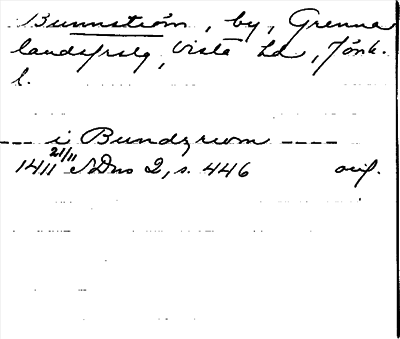 Bunnström, by, Grenna
landsfrslg, Vista hd, Jönk.
l.
--- i Bundzrwm ----
1411 21/11 SDns 2, s. 446 orig.